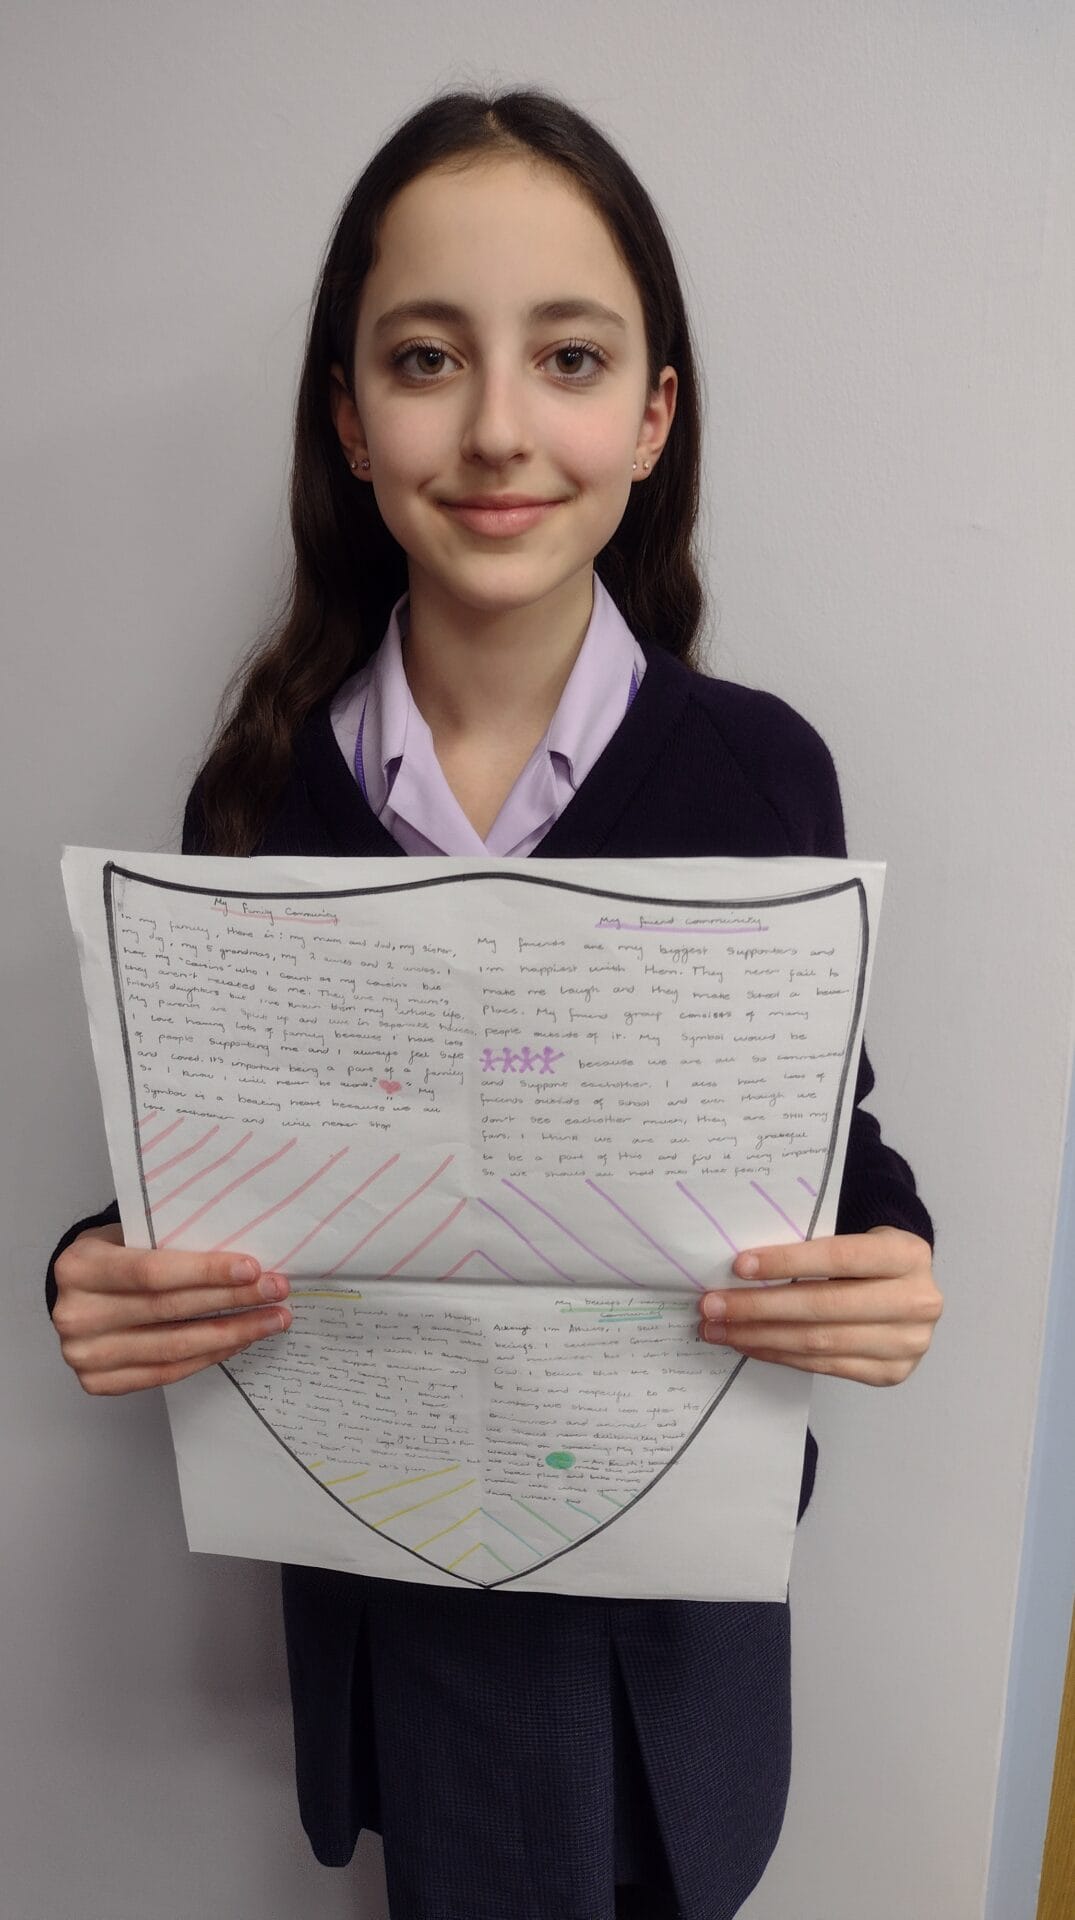 My Family Community
In my family, there is: my mum and dad, my sister,
my dog, my 5 grandmas, my 2 aunies and 2 uncles. I
have my "cousins" who I count as my cousins but
they aren't related to me. They are my mum's
friends daughters but I've known them my whole life.
My parents are split up and live in separate houses,
I love having lots of family because I have lots
of people supporting me and I always feel safe
and loved. It's important being a part of a family
so I know I will never be alone. " " My
Symbol is a beating heart because we all
love eachother and will never stop
My friend community
My friends are my biggest supporters and
I'm happiest with them. They never fail to
make me laugh and they make school a better
place. My friend group consists of many
people outside of it. My symbol would be
because we are all so connected
and support eachother. I also have lots of
friends outside of school and even though we
don't see eachother much, they are still my
fans. I think we are all very grateful
to be a part of this and find it very important
so we should all hold onto that feeling.
community
my friends so I'm
being a part of
and I love being
of a variety of
to support eachother and
are very caring. This group
so important to me as I think I
amazing education but I have
of fun along the way. On top of
that, the school is and there
so many places to go.
would be my logo because
its a "book" to show education but
because it's fun
My beliefs /
Community
Although I'm Athiest, I still have
beliefs. I celebrate Christmas,
and but I don't believe in
God. I believe that we should all
be kind and respectful to one
another, we should look after the
environment and animals and
we should never deliberately hurt
someone or something. My symbol
would be, - An Earth! because
we need to make this world
a better place and take more
notice into what you are
doing what's